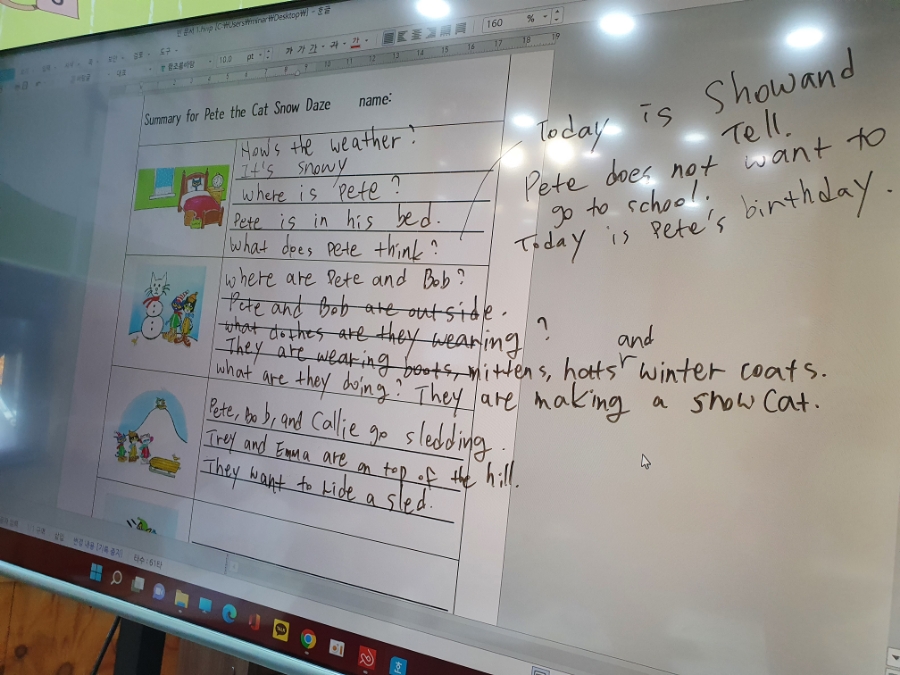 160 %
10.0 pt
Summary for Pete the Cat Snow Daze name:
How's the weather?
It's snowy
Where is Pete?
Pete is in his bed.
What does Pete think?
Today is Show and
Tell.
Pete does not want to
go to school.
Today is Pete's birthday.
Where are Pete and Bob?
Pete and Bob are outside.
What clothes are they wearing?
They are wearing boots, mittens, hatts and winter coats.
What are they doing? They are making a snow Cat.
Pete, Bob, and Callie go sledding.
Trey and Emma are on top of the hill.
They want to ride a sled.